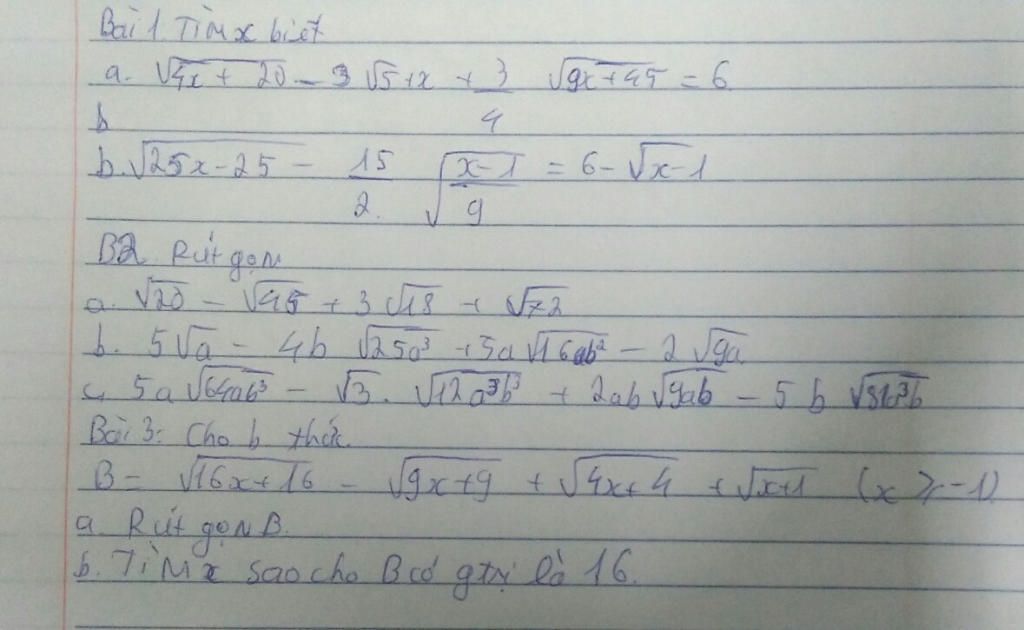 Bài 1. Tìm x biết
a. √(4x + 20) - 3 √(5+x) + 3/4 √(9x+45) = 6
b
b. √(25x-25) - 15/2. √((x-1)/9) = 6 - √(x-1)
B2. Rút gọn
a. √20 - √45 + 3√18 + √72
b. 5√a - 4b √(25a³) + 5a √(16ab²) - 2√(9a)
c, 5a√(64ab³) - √3. √(12a³b³) + 2ab √(9ab) - 5b √(81a³b)
Bài 3: Cho b. thức.
B = √(16x+16) - √(9x+9) + √(4x+4) + √(x+1) (x ≥ -1)
a. Rút gọn B.
b. Tìm x sao cho B có g trị là 16.